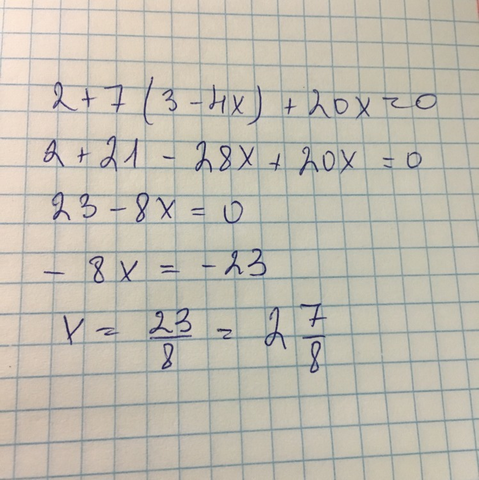 2 + 7 (3 - 4x) + 20x = 0
2 + 21 - 28x + 20x = 0
23 - 8x = 0
- 8x = -23
x = 23/8 = 2 7/8